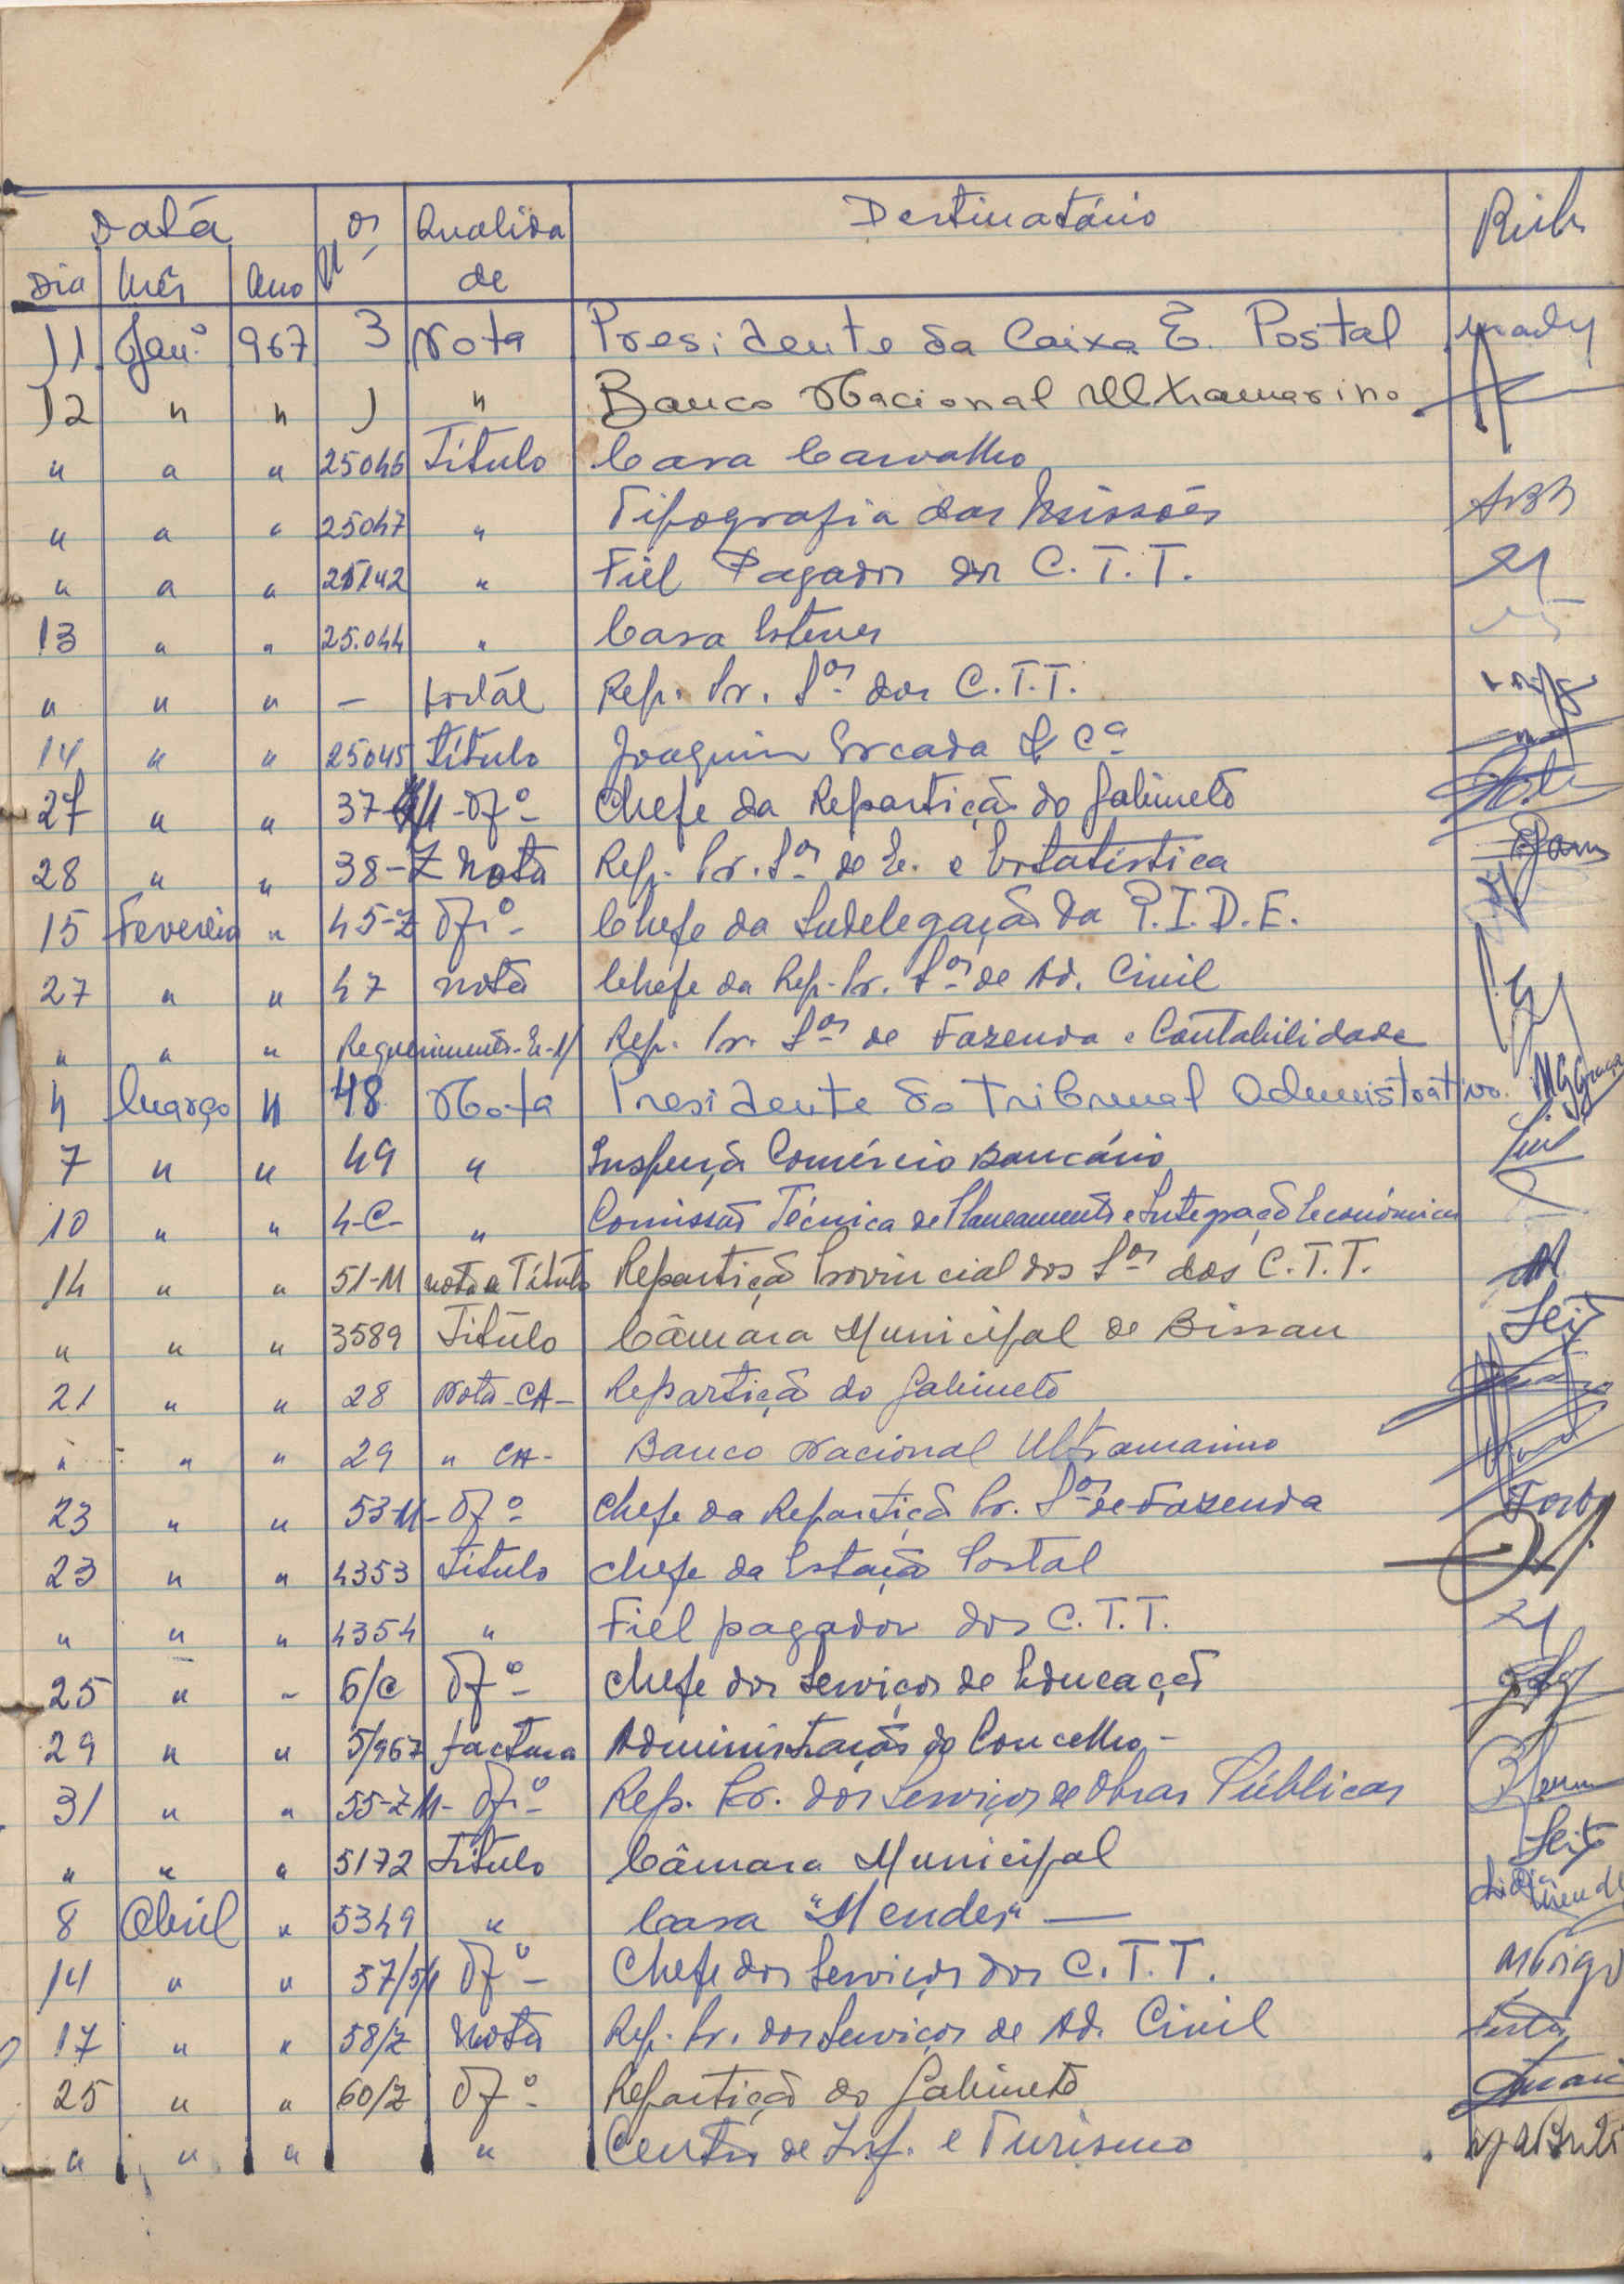 Data Nos Qualida Destinatário Rub.
Dia Mês Ano de
11 Janº 967 3 Nota Presidente da Caixa E. Postal
12 " " 1 " Banco Nacional Ultramarino
" " " 25046 Título Casa Carvalho
" " " 25047 " Tipografia das Missões
" " " 25142 " Fiel Pagador dos C.T.T.
13 " " 25.044 " Casa Esteves
" " " – Postal Rep. Pr. Sos dos C.T.T.
14 " " 25045 Título Joaquim Escada & Cª
27 " " 37 Ofº Chefe da Repartição do Gabinete
28 " " 38-Z Nota Rep. Pr. Sos de E. e Estatística
15 Fevereiro " 45-Z Ofº Chefe da Subdelegação da P.I.D.E.
27 " " 47 nota Chefe da Rep. Pr. Sos de Ad. Civil
" " " Requerimento Rep. Pr. Sos de Fazenda e Contabilidade
4 Março " 48 Nota Presidente do Tribunal Administrativo.
7 " " 49 " Inspeção Comércio Bancário
10 " " 4-C- " Comissão Técnica de Planeamento e Integração Económica
14 " " 51-M nota e Título Repartição Provincial dos Sos dos C.T.T.
" " " 3589 Título Câmara Municipal de Bissau
21 " " 28 Nota-CA- Repartição do Gabinete
" " " 29 " CA- Banco Nacional Ultramarino
23 " " 53-M- Ofº Chefe da Repartição Pr. Sos de Fazenda
23 " " 4353 Título Chefe da Estação Postal
" " " 4354 " Fiel pagador dos C.T.T.
25 " " 6/C Ofº Chefe dos Serviços de Educação
29 " " 5/967 factura Administração do Concelho -
31 " " 55-Z M- Ofº Rep. Pr. dos Serviços de Obras Públicas
" " " 5172 Título Câmara Municipal
8 Abril " 5349 " Casa "Mendes" —
14 " " 57/M Ofº Chefe dos Serviços dos C.T.T.
17 " " 58/Z Nota Rep. Pr. dos Serviços de Ad. Civil
25 " " 60/Z Ofº Repartição do Gabinete
" " " " Centro de Inf. e Turismo